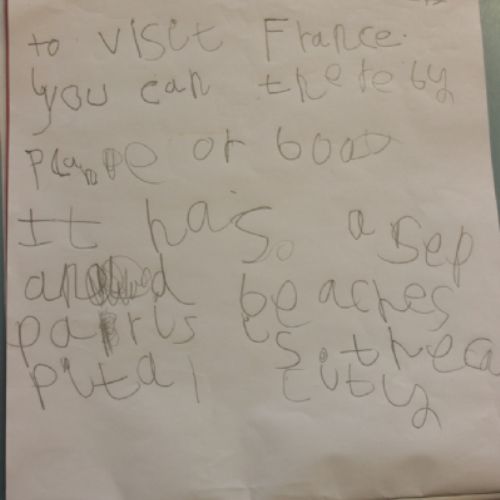 to visit France.
you can there by
plane or boat
It has. a sep
and beaches
paris is. the ca
pital city